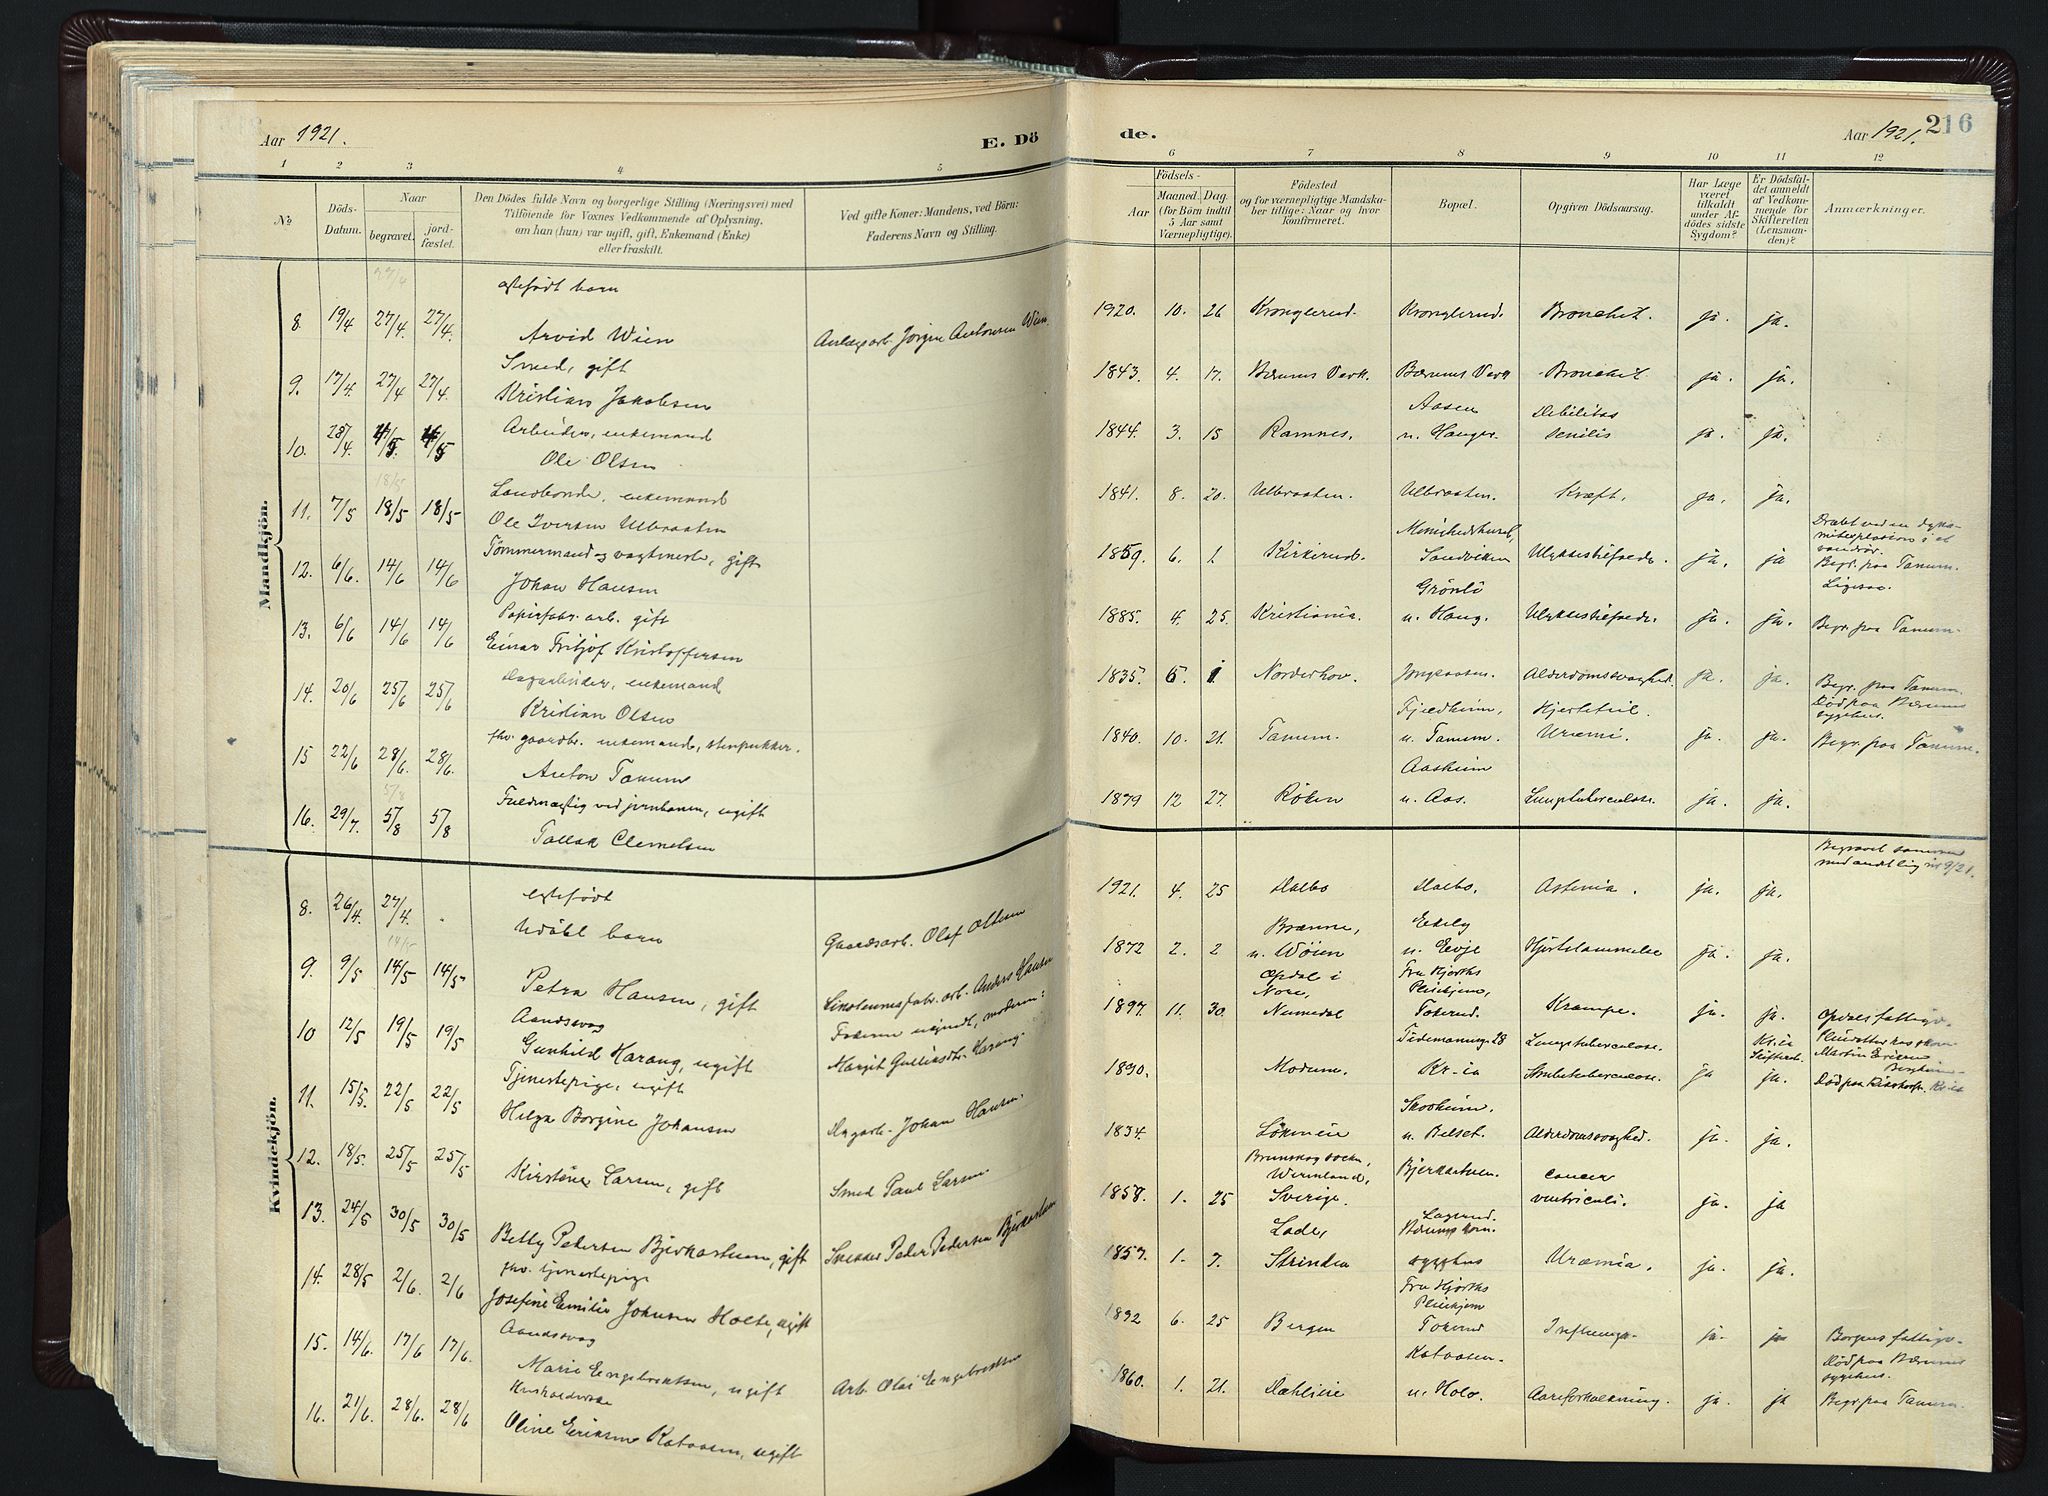 Aar 1921.
E. Dö
de.
Aar 1921.
216
1 2 3 4 5 6 7 8 9 10 11 12
No.
Döds-Datum.
Naar
begravet.
jord-fæstet.
Den Dödes fulde Navn og borgerlige Stilling (Næringsvei) med
Tilföiende for Voxnes Vedkommende af Oplysning,
om han (hun) var ugift, gift, Enkemand (Enke)
eller fraskilt.
Ved gifte Koner: Mandens, ved Börn:
Faderens Navn og Stilling.
Födsels-
Aar
Maaned. Dag.
(for Börn indtil
5 Aar samt
Værnepligtige).
Födested
og for værnepligtige Mandska-
ber tillige: Naar og hvor
konfirmeret.
Bopæl.
Opgiven Dödsaarsag.
Har Læge
været
tilkaldt
under Af-
dödes sidste
Sygdom?
Er Dödsfal-
det anmeldt
af Vedkom-
mende for
Skifteretten
(Lensman-
den)?
Anmærkninger.
Mandkjön.
27/4
8. 19/4 27/4 27/4. egtefødt barn
Arvid Wien
Anlægsarb. Jörgen Antonsen Wien.
1920. 10. 26 Kronglerud. Kronglerud. Bronchit. ja. ja.
9. 17/4. 27/4 27/4. Smed, gift
Kristian Jakobsen
1843. 4. 17. Bærums Verk. Bærums Verk Bronchit. ja. ja.
10. 28/4. 4/5. 4/5 Arbeider, enkemand
Ole Olsen
1844. 3. 15 Ramnes. Aasen
u. Hauger. Debilitas
senilis ja. ja.
18/5
11. 7/5 18/5 18/5 Landbonde, enkemand
Ole Iversen Ulbraaten
1841. 8. 20. Ulbraaten. Ulbraaten. Kræft. ja. ja.
12. 6/6. 14/6 14/6 Tömmermand og vagtmester, gift
Johan Hansen
1859. 6. 1. Kirkerud. Sandviken Ulykkestilfælde. ja. ja
Dræbt ved en dyna-
miteksplosion i et
vandrör.
Begr. paa Tanum.
Ligesaa.
13. 6/6 14/6 14/6 Papirfabr. arb. gift
Einar Fritjof Kristoffersen
1885. 4. 25. Kristiania. Grönli
u. Haug. Ulykkestilfælde. ja. ja. Begr. paa Tanum.
14. 20/6 25/6 25/6 Dagarbeider, enkemand
Kristian Olsen
1835. 5. 1 Norderhov. Jongsaasen. Alderdomssvaghed. ja. ja. Begr. paa Tanum.
15 22/6 28/6. 28/6. fhv. gaardbr. enkemand, stenpukker.
Anton Tanum
1840. 10. 21. Tanum. Fjeldheim,
u. Tanum. Hjertefeil.
Uræmi. ja. ja. Död paa Bærums
sygehus.
Begr. paa Tanum.
5/8
16. 29/7. 5/8 5/8 Fuldmægtig ved jernbanen, ugift
Tallak Clemetsen
1879 12 27. Röken Aasheim
u. Aas. Lungetuberculose. ja. ja.
Kvindekjön.
8. 26/4. 27/4. egtefødt
Udöbt barn
Gaardsarb. Olaf Olsen
1921. 4. 25 Dalbo Dalbo. Astenia. ja. ja.
Begravet sammen
med andet lig nr 9/21.
14/5
9. 9/5 14/5 14/5 Petra Hansen, gift
Linoleumsfabr. arb. Anders Hansen
1872 2. 2 Brænne,
u. Wöien Eikely
u. Evje Hjertelammelse ja. ja.
10 12/5 19/5 19/5 Aandssvag
Gunhild Harang, ugift
Faderen ugjendt, moderen:
Margit Gulliksdtr. Harang.
1897. 11. 30. Opdal i
Nore,
Numedal Fru Hjorths
Pleiehjem,
Tokerud. Krampe. ja. ja. Opdals fattigv.
11. 15/5. 22/5 22/5 Tjenestepige, ugift
Helga Borgine Johansen
Dagarb. Johan Hansen.
1890. Modum. Tidemannsg. 28
Kr-ia Lungetuberculose. ja Kr.ia
Skifteret.
ja.
Martin Eriksen
Död paa
12. 18/5. 25/5 25/5 Kirstine Larsen, gift
Smed Paul Larsen.
1834. Lökmeie Skovheim.
u. Belset. Alderdomssvaghed. ja. ja.
13. 24/5 30/5 30/5 Betty Pedersen Bjerkastuen, gift
Snekker Peder Pedersen Bjerkestuen
1858. 1. 25 Brunskog socken,
Wermland,
Sverige. Bjerkastuen. Cancer
ventriculi. ja. ja
14. 28/5 2/6. 2/6 fhv. tjenestepige
Josefine Emilie Johnsen Holte, ugift
1857. 1. 7. Lade,
Strinda Lagerud.
Bærums kom.
sygehus Uræmia. ja. ja.
15. 14/6. 17/6 17/6. Aandssvag
Marie Engebretsen, ugift
Arb. Olai Engebretsen
1892 6. 25 Bergen Fru Hjorths
Pleiehjem
Tokerud Influensa. ja. ja Bergens fattigv.
16. 21/6. 28/6. 28/6 Husholderske
Oline Eriksen Kataasen, ugift
1860. 1. 21. Dæhlieie Kataasen.
u. Holo. Aareforkalkning. ja. ja Död paa Bærums
sygehus.
Begr. paa Tanum.